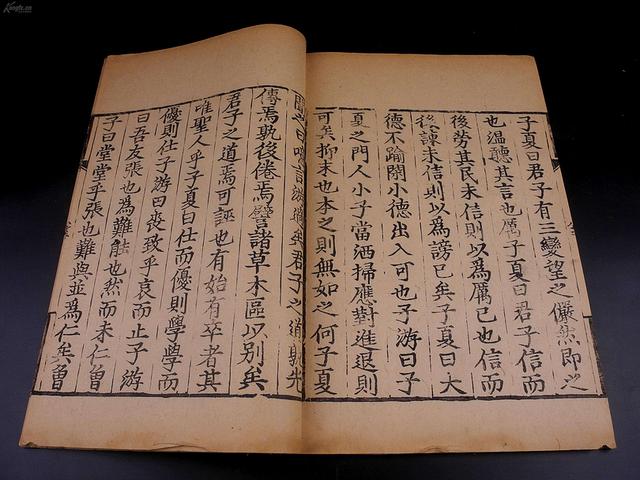 Kongfz.cn
子夏曰君子有三變望之儼然即之
也温聽其言也厲子夏曰君子信而
後勞其民未信則以爲厲己也信而
後諫未信則以爲謗己矣子夏曰大
德不踰閑小德出入可也子游曰子
夏之門人小子當洒掃應對進退則
可矣抑末也本之則無如之何子夏
聞之曰噫言游過矣君子之道孰先
傳焉孰後倦焉譬諸草木區以別矣
君子之道焉可誣也有始有卒者其
唯聖人乎子夏曰仕而優則學學而
優則仕子游曰喪致乎哀而止子游
曰吾友張也爲難能也然而未仁曾
子曰堂堂乎張也難與並爲仁矣曾